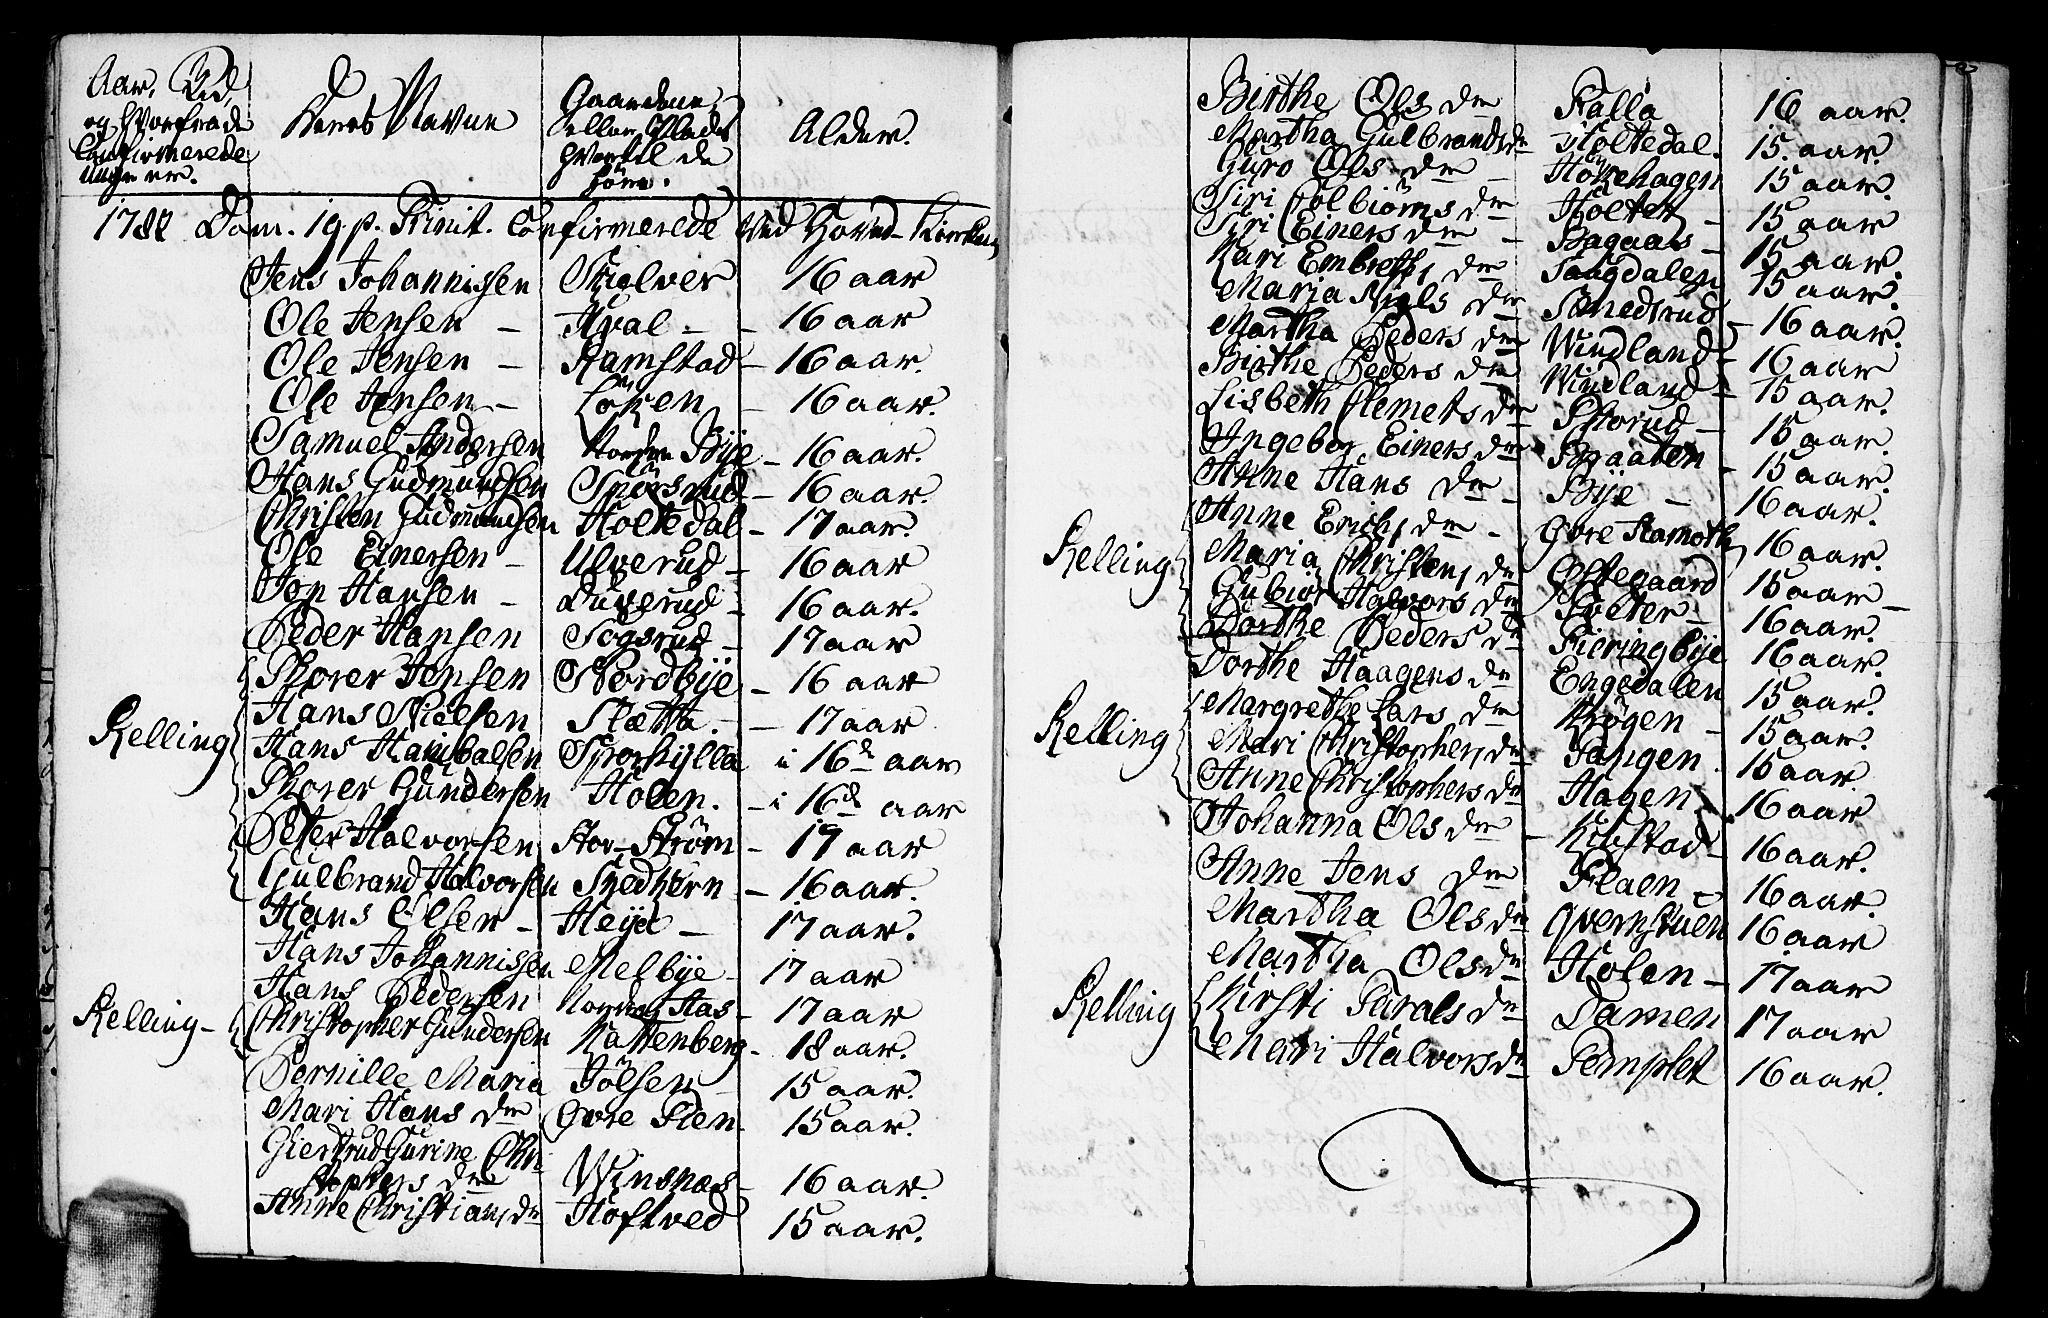 Aar, Tid
og hvorfra de
Confirmerede
unge er.
Deres Navne
Gaardene
eller Pladse
hvortil de
höre.
Alder.
1787 Dom. 19. p. Trinit. Confirmerede ved Hoved-Kirken,
Jens Johannissen Skiolver 16 aar
Ole Jensen - Hval - - 16 aar
Ole Jensen - Ramstad - 16 aar
Ole Jensen - Löken - 16 aar.
Samuel Andersen Norden Bÿe - 16 aar.
Hans Gudmundsen Snörsrud - 16 aar.
Christen Gudmundsen Holtedal - 17 aar.
Ole Einersen - Ulverud - 16 aar
Jon Hansen - Duserud - 16 aar.
Peder Hansen Sogsrud - 17 aar
Thorer Jensen Nordbÿe - 16 aar
Hans Nielsen Slætta - - 17 aar
Relling
Hans Hanibalsen Sporshÿlla i 16d aar
Thorer Gundersen Holen. - i 16d aar
Peter Halvorsen Stor-Strøm - 19 aar
Gulbrand Halvorsen Snedkern - 16 aar.
Hans Olsen - Heÿa - 17 aar.
Hans Johannissen Melbÿe - 17 aar
Hans Pedersen Norden Has - 17 aar
Relling -
Christopher Gundersen Kattenberg - 18 aar.
Pernille Maria Jölsen 15 aar
Mari Hans dm Øvre Steen 15 aar.
Giertrud Gurine Chri
stophers dm Winsnæs - 16 aar.
Anne Christians dm Hoftved 15 aar.
Birthe Ols dm Falla 16 aar.
Martha Gulbrands dm Holtedal. 15. aar.
Guro Ols dm - Hönehagen 15 aar.
Siri Colbiörns dm Holter - 15 aar
Siri Einers dm - Bagaas - 15 aar.
Kari Embrets dm Saugdalen 15 aar.
Maria Niels dm Smedsrud - 16 aar.
Martha Peders dm Windland - 16 aar
Birthe Peders dm Windland - 15 aar.
Lisbeth Clemets dm Storud - 15 aar.
Ingebor Einers dm Braaten - 15 aar.
Anne Hans dm - Bÿe - 16 aar.
Anne Erichs dm - Øvre Ramoth 16 aar.
Relling
Maria Christens dm Østegaard 15 aar -
Gubior Halvors dm Sæter - 16 aar.
Dorthe Peders dm Fieringbÿe 16 aar.
Dorthe Haagens dm Engedalen 15 aar.
Margrethe Lars dm Krogen - 15 aar.
Relling
Mari Christophers dm Tangen 15 aar.
Anne Christophers dm Hagen 16 aar
Johanna Ols dm - Kiustad - 16 aar.
Anne Jens dm Flaen - 16 aar.
Martha Ols dm Qvernstuen 16 aar
Martha Ols dm Holen - 17 aar
Relling
Kirsti Tarals dm Damen 17 aar
Mari Halvors dm Templet 16 aar.